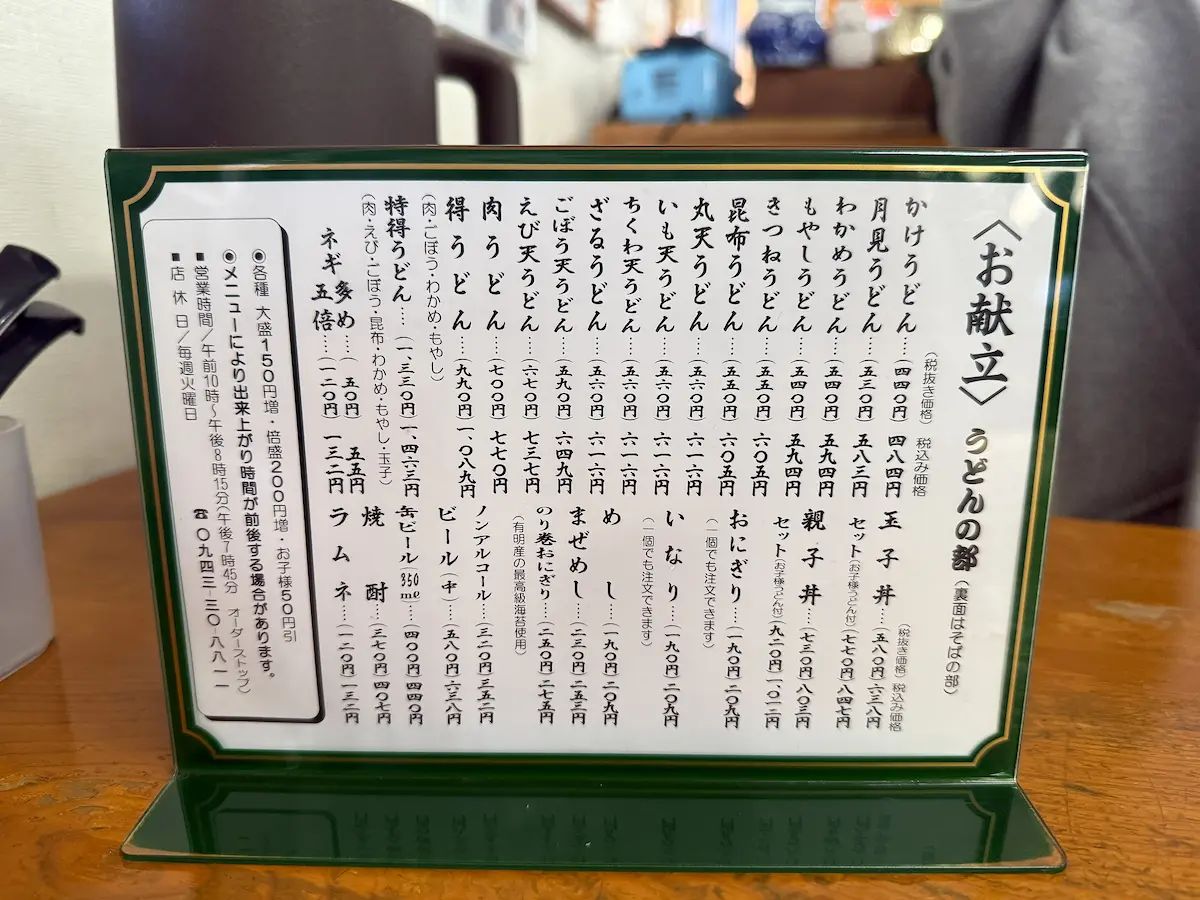 〈お献立〉 うどんの部(裏面はそばの部)
(税抜き価格) 税込み価格
かけうどん…(四四〇円)四八四円
月見うどん…(五三〇円)五八三円
わかめうどん…(五四〇円)五九四円
もやしうどん…(五四〇円)五九四円
きつねうどん…(五五〇円)六〇五円
昆布うどん…(五五〇円)六〇五円
丸天うどん…(五六〇円)六一六円
いも天うどん…(五六〇円)六一六円
ちくわ天うどん…(五六〇円)六一六円
ざるうどん…(五六〇円)六一六円
ごぼう天うどん…(五九〇円)六四九円
えび天うどん…(六七〇円)七三七円
肉うどん…(七〇〇円)七七〇円
得うどん…(九九〇円)一、〇八九円
(肉・ごぼう・わかめ・もやし)
特得うどん…(一、三三〇円)一、四六三円
(肉・えび・ごぼう・昆布・わかめ・もやし・玉子)
ネギ多め…(五〇円)五五円
五倍…(一二〇円)一三二円
(税抜き価格) 税込み価格
玉子丼…(五八〇円)六三八円
セット(お子様うどん付)(七七〇円)八四七円
親子丼…(七三〇円)八〇三円
セット(お子様うどん付)(九二〇円)一〇一二円
おにぎり…(一九〇円)二〇九円
(一個でも注文できます)
いなり…(一九〇円)二〇九円
(一個でも注文できます)
めし…(一九〇円)二〇九円
まぜめし…(二三〇円)二五三円
のり巻おにぎり…(二五〇円)二七五円
(有明産の最高級海苔使用)
ノンアルコール…(三二〇円)三五二円
ビール(中)…(五八〇円)六三八円
缶ビール(350mℓ)…(四〇〇円)四四〇円
焼酎…(三七〇円)四〇七円
ラムネ…(一二〇円)一三二円
◉各種 大盛150円増・倍盛200円増・お子様50円引
◉メニューにより出来上がり時間が前後する場合があります。
■営業時間/午前10時〜午後8時15分(午後7時45分 オーダーストップ)
■店休日/毎週火曜日
☎〇九四三ー三〇ー八八一一